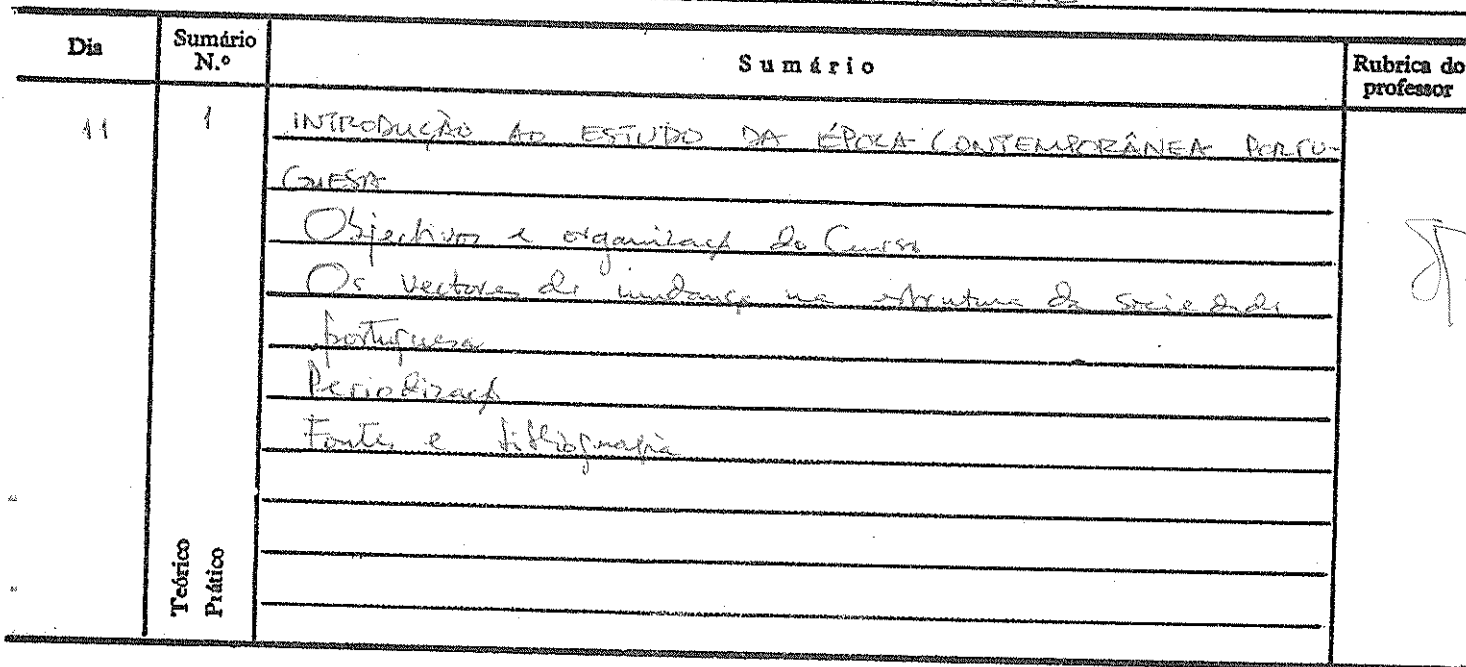 Dia
Sumário N.º
Sumário
Rubrica do professor
11
1
INTRODUÇÃO AO ESTUDO DA ÉPOCA CONTEMPORÂNEA PORTU-
GUESA
Objectivos e organizaç do Curso
Os vectores de mudança na estrutura da sociedade
portuguesa
Periodizaç
Fontes e bibliografia
Teórico
Prático